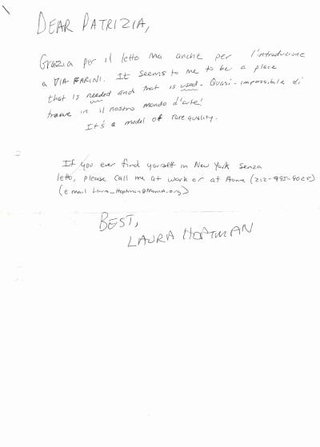 DEAR PATRIZIA,
Grazia per il letto ma anche per l'introduzione
a VIA FARINI. It seems to me to be a place
that is needed and that is used. Quasi-impossibile di
trovare in il nostro mondo d'arte!
It's a model of rare quality.
If you ever find yourself in New York senza
letto, please call me at work or at home
(email
BEST,
LAURA HOPTMAN